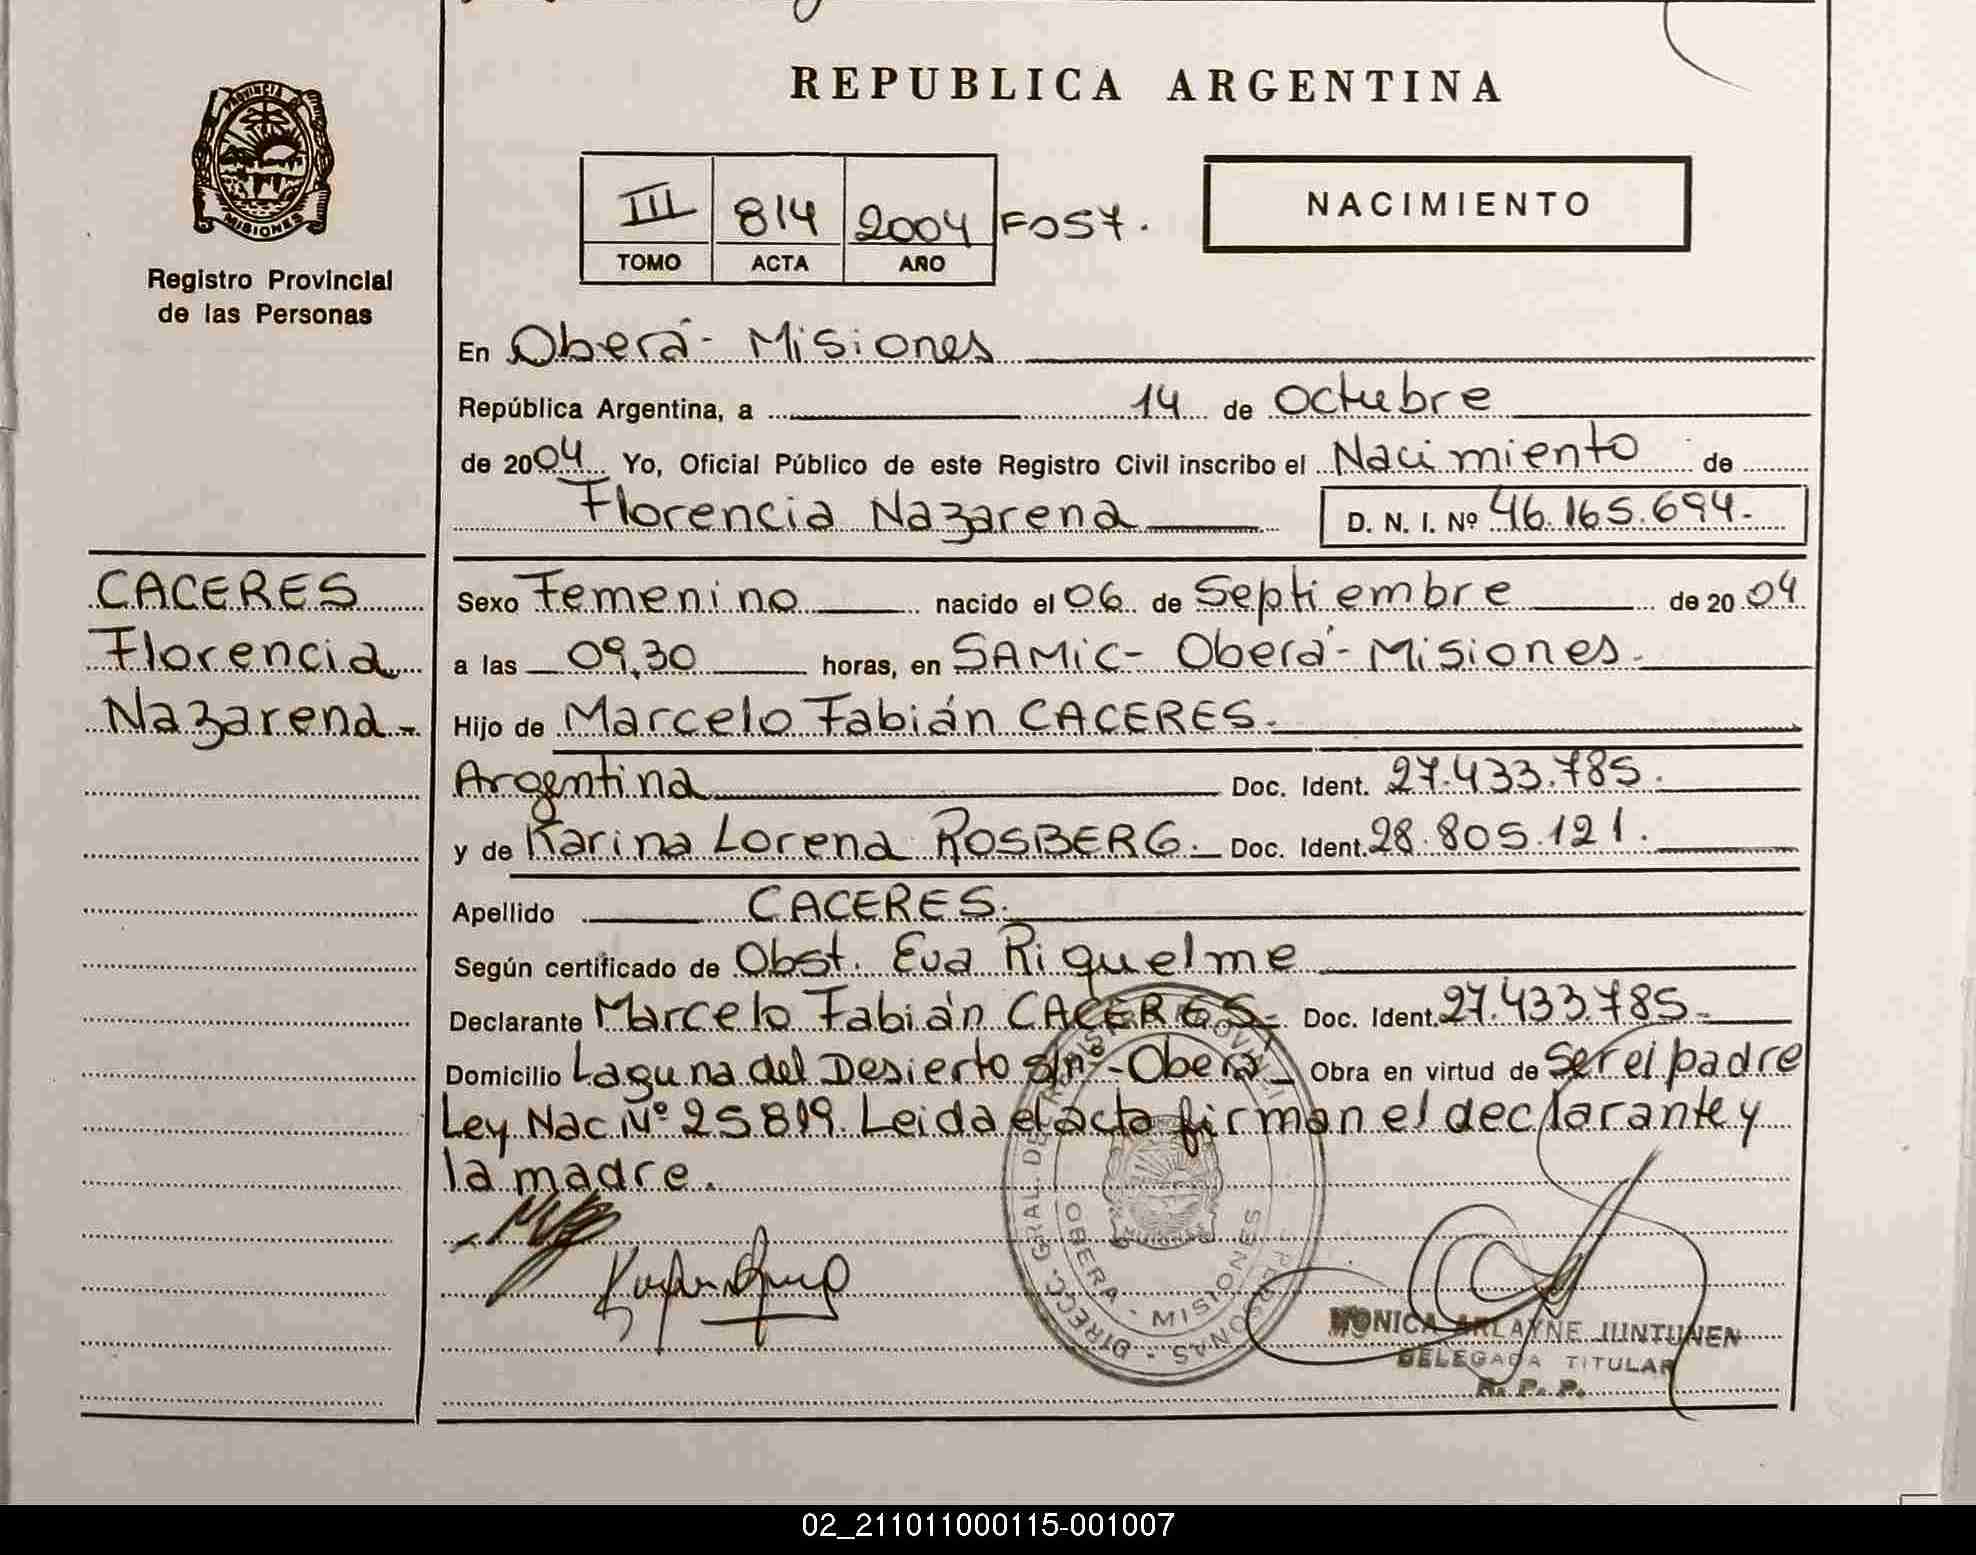 REPUBLICA ARGENTINA
PROVINCIA DE
MISIONES
Registro Provincial
de las Personas
III 814 2004 F057.
TOMO ACTA AÑO
NACIMIENTO
En Oberá - Misiones
República Argentina, a 14 de Octubre
de 2004 Yo, Oficial Público de este Registro Civil inscribo el Nacimiento de
Florencia Nazarena D. N. I. Nº 46.165.694.-
CACERES
Florencia
Nazarena -
Sexo Femenino nacido el 06 de Septiembre de 2004
a las 09,30 horas, en SAMIC - Oberá - Misiones.
Hijo de Marcelo Fabián CACERES.
Argentina Doc. Ident. 27.433.785.
y de Karina Lorena ROSBERG. Doc. Ident. 28.805.121.
Apellido CACERES.
Según certificado de Obst. Eva Riquelme
Declarante Marcelo Fabián CACERES.- Doc. Ident. 27.433.785.-
Domicilio Laguna del Desierto s/nº - Oberá Obra en virtud de Ser el padre
Ley Nac Nº 25819. Leida el acta firman el declarante y
la madre.
OBERA - MISIONES
MONICA ARLAYNE JUNTUNEN
DELEGADA TITULAR
R. P. P.
02_211011000115-001007